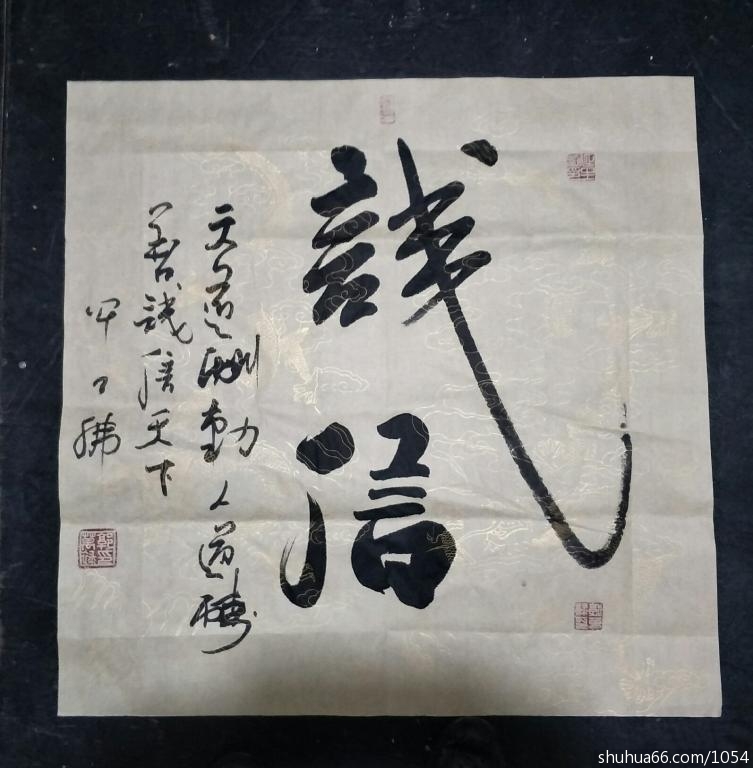 誠信
天道酬勤人道酬
善誠信天下
shuhua66.com/1054